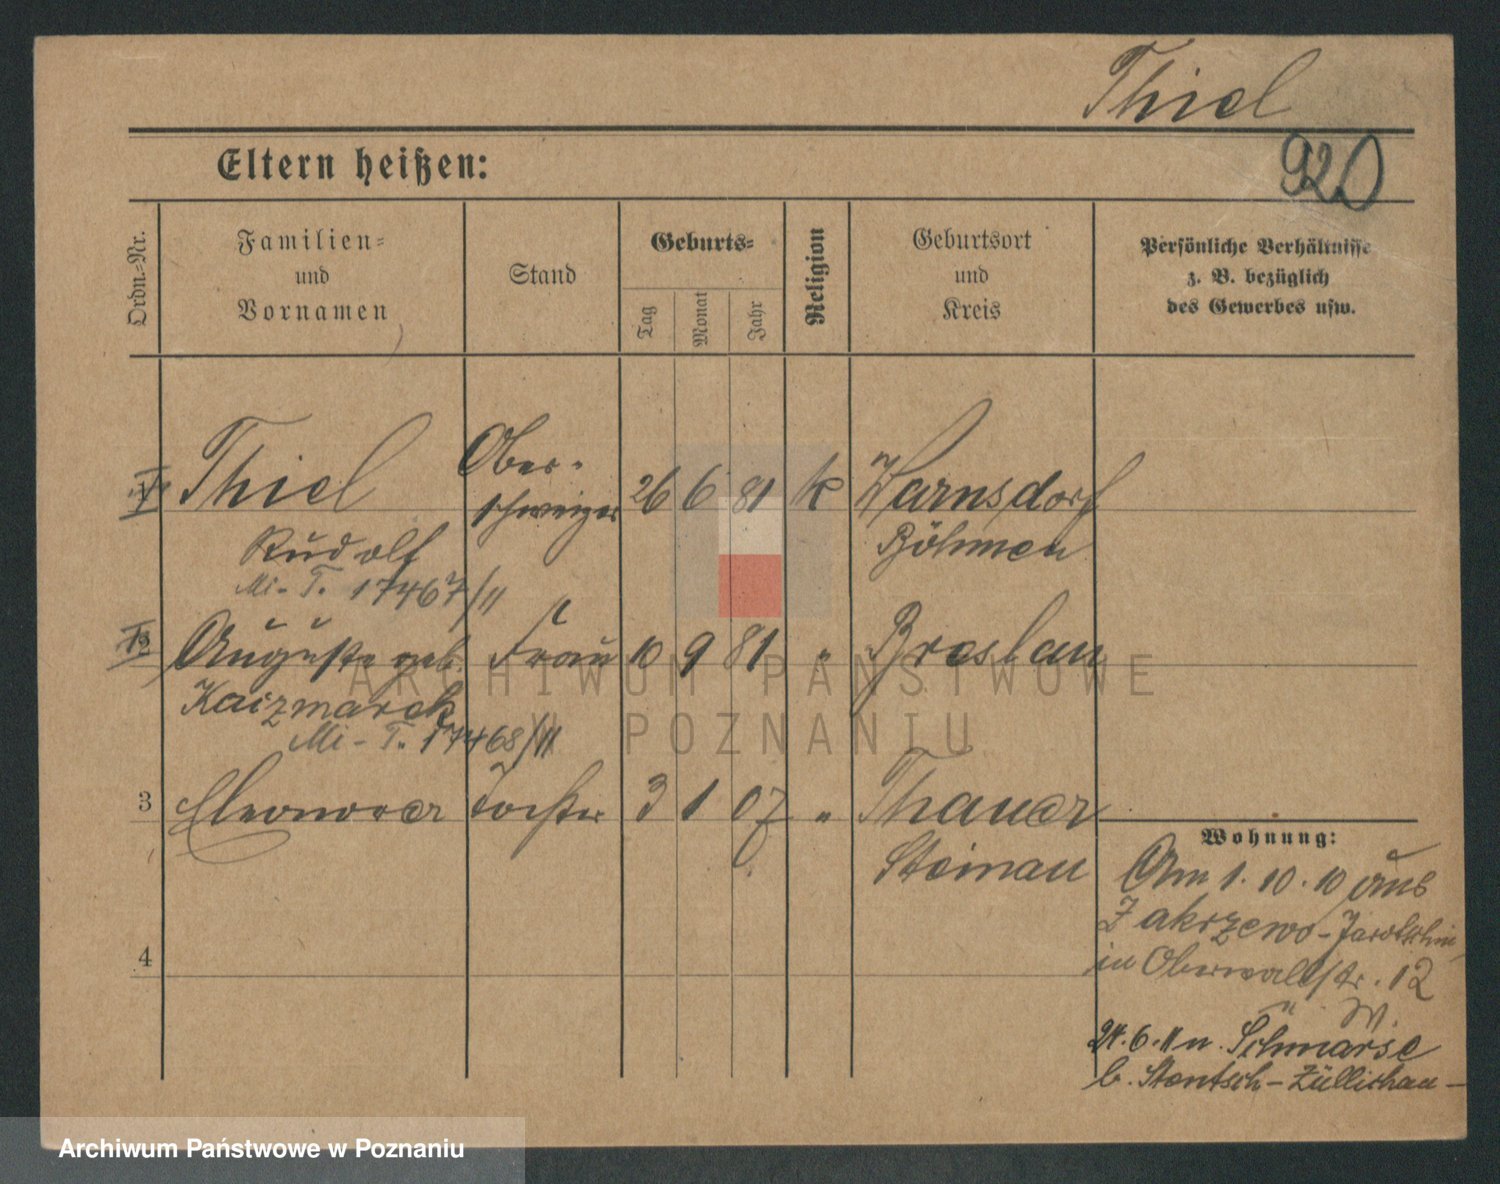 Thiel
920
Eltern heißen:
Ordn.=Nr.
Familien=
und
Vornamen
Stand
Geburts=
Tag
Monat
Jahr
Religion
Geburtsort
und
Kreis
Persönliche Verhältnisse
z. B. bezüglich
des Gewerbes usw.
1 Thiel Ober- schweizer 26 6 81 k Warnsdorf
Rudolf Böhmen
Mi-T. 17467/11
2 Auguste geb. Frau 10 9 81 " Breslau
Kaizmarek
Mi-T. 17468/11
3 Eleonore Tochter 3 1 07 " Thauer
Steinau
4
Wohnung:
Am 1.10.10 aus
Zakrzewo-Jarotschin
in Oberwallstr. 12
W.
24.6.11 n. Schmarse
b. Stentsch-Züllichau-
ARCHIWUM PAŃSTWOWE
W POZNANIU
Archiwum Państwowe w Poznaniu